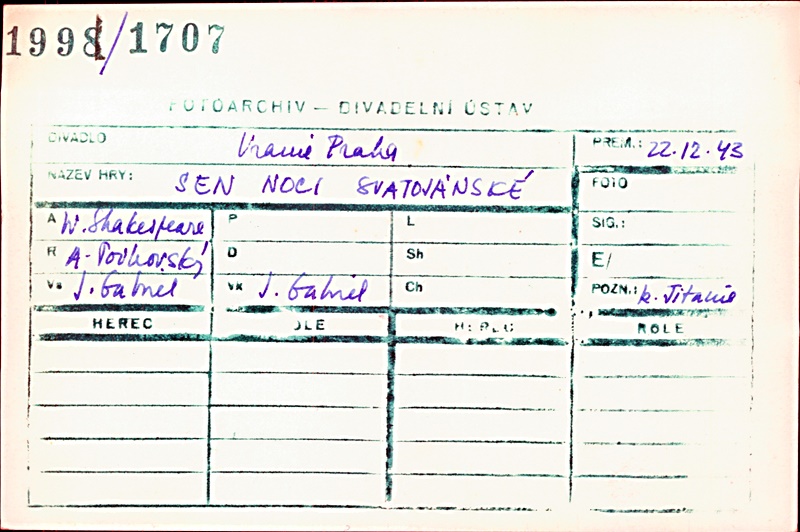 1998/1707
FOTOARCHIV – DIVADELNÍ ÚSTAV
DIVADLO Uranie Praha PREM.: 22.12.43
NÁZEV HRY: SEN NOCI SVATOJÁNSKÉ FOTO
A W. Shakespeare P L SIG.:
R A. Podhorský D Sh E/
Vs J. Gabriel VK J. Gabriel Ch POZN.: k. Titanie
HEREC ROLE HEREC ROLE